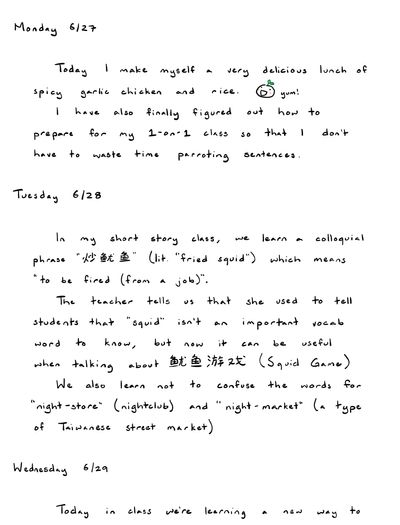 Monday 6/27
Today I make myself a very delicious lunch of
spicy garlic chicken and rice. yum!
I have also finally figured out how to
prepare for my 1-on-1 class so that I don't
have to waste time parroting sentences.
Tuesday 6/28
In my short story class, we learn a colloquial
phrase "炒魷魚" (lit. "fried squid") which means
"to be fired (from a job)".
The teacher tells us that she used to tell
students that "squid" isn't an important vocab
word to know, but now it can be useful
when talking about 魷魚游戏 (Squid Game)
We also learn not to confuse the words for
"night-store" (nightclub) and "night-market" (a type
of Taiwanese street market)
Wednesday 6/29
Today in class we're learning a new way to